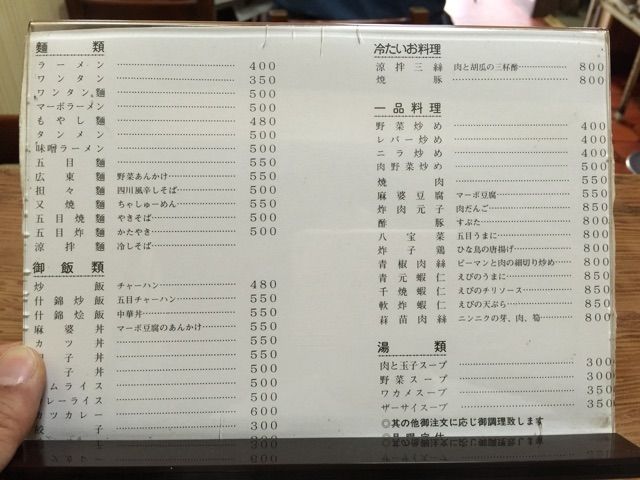 麺類
ラーメン 400
ワンタン 350
ワンタン麺 500
マーボラーメン 500
もやし麺 480
タンメン 500
味噌ラーメン 500
五目麺 550
広東麺 野菜あんかけ 550
担々麺 四川風辛しそば 500
叉焼麺 ちゃしゅーめん 550
五目焼麺 やきそば 500
五目炸麺 かたやき 550
涼拌麺 冷しそば
御飯類
炒飯 チャーハン 480
什錦炒飯 五目チャーハン 550
什錦烩飯 中華丼 550
麻婆丼 マーボ豆腐のあんかけ 550
カツ丼 550
子丼 500
子丼 550
ムライス 500
レーライス 500
カツカレー 600
餃子 300
冷たいお料理
涼拌三絲 肉と胡瓜の三杯酢 800
焼豚 800
一品料理
野菜炒め 400
レバー炒め 400
ニラ炒め 400
肉野菜炒め 500
焼肉 550
麻婆豆腐 マーボ豆腐 550
炸肉元子 肉だんご 850
酢豚 すぶた 800
八宝菜 五目うまに 800
炸子鶏 ひな鳥の唐揚げ 800
青椒肉絲 ピーマンと肉の細切り炒め 800
青元蝦仁 えびのうまに 850
干焼蝦仁 えびのチリソース 850
軟炸蝦仁 えびの天ぷら 850
蒜苗肉絲 ニンニクの芽、肉、筍 800
湯類
肉と玉子スープ 300
野菜スープ 300
ワカメスープ 350
ザーサイスープ 350
◎其の他御注文に応じ御調理致します